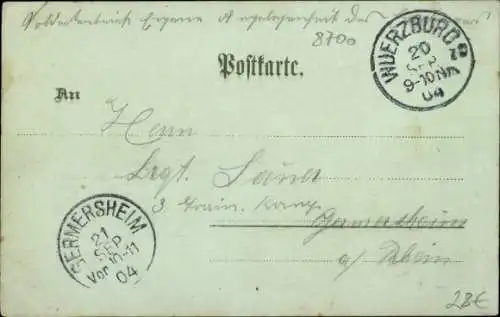 Soldatenbrief Eigene Angelegenheit des Empfängers
8700
WUERZBURG 2
20
SEP
9-10 Nm
04
Postkarte.
An
Herrn
Sergt.
3. Train. Komp.
Germersheim
a/ Rhein
GERMERSHEIM
21
SEP
Vor 10-11
04
28€